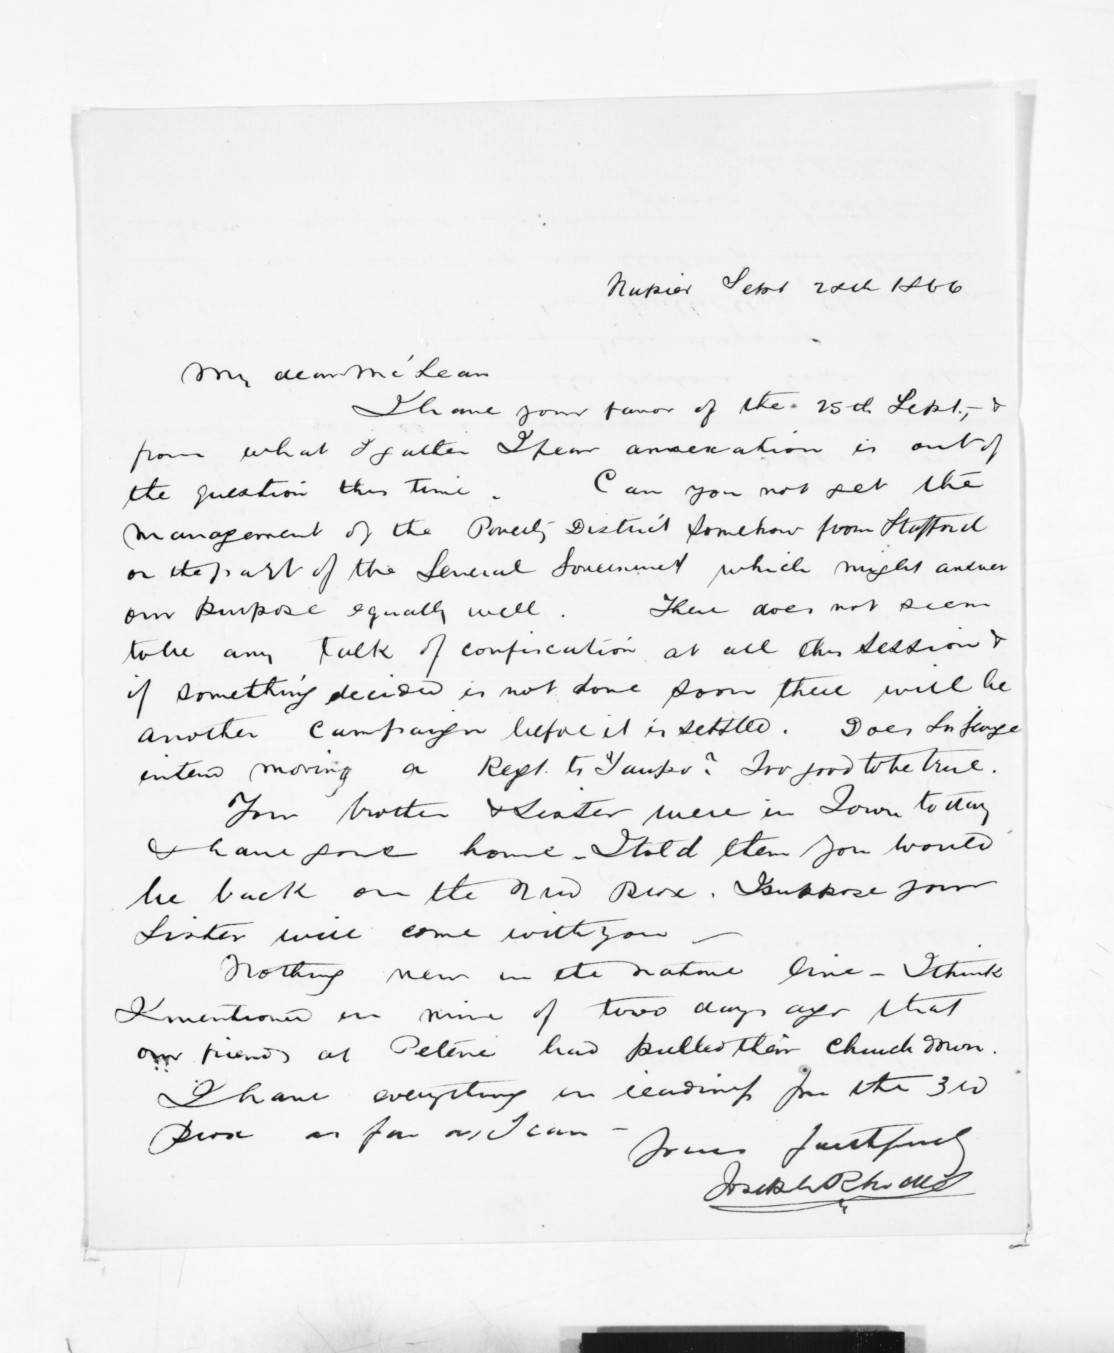 Napier Sept 28th 1866
My dear McLean
I have your favor of the 25th Sept., &
from what I gather I fear annexation is out of
the question this time. Can you not get the
management of the Poverty District somehow from Stafford
on the part of the General Government which might answer
our purpose equally well. There does not seem
to be any talk of confiscation at all this session &
if something decided is not done soon there will be
another campaign before it is settled. Does Sir George
intend moving a Regt. to Taupo? Too good to be true.
Your brother & Sister were in Town to day
& have gone home - I told them you would
be back on the 3rd prox. I suppose your
Sister will come with you -
Nothing new in the native line - I think
I mentioned in mine of two days ago that
our friends at Petane had pulled their Church down.
I have everything in readiness for the 3rd
prox as far as I can -
Yours faithfully
Joseph Rhodes